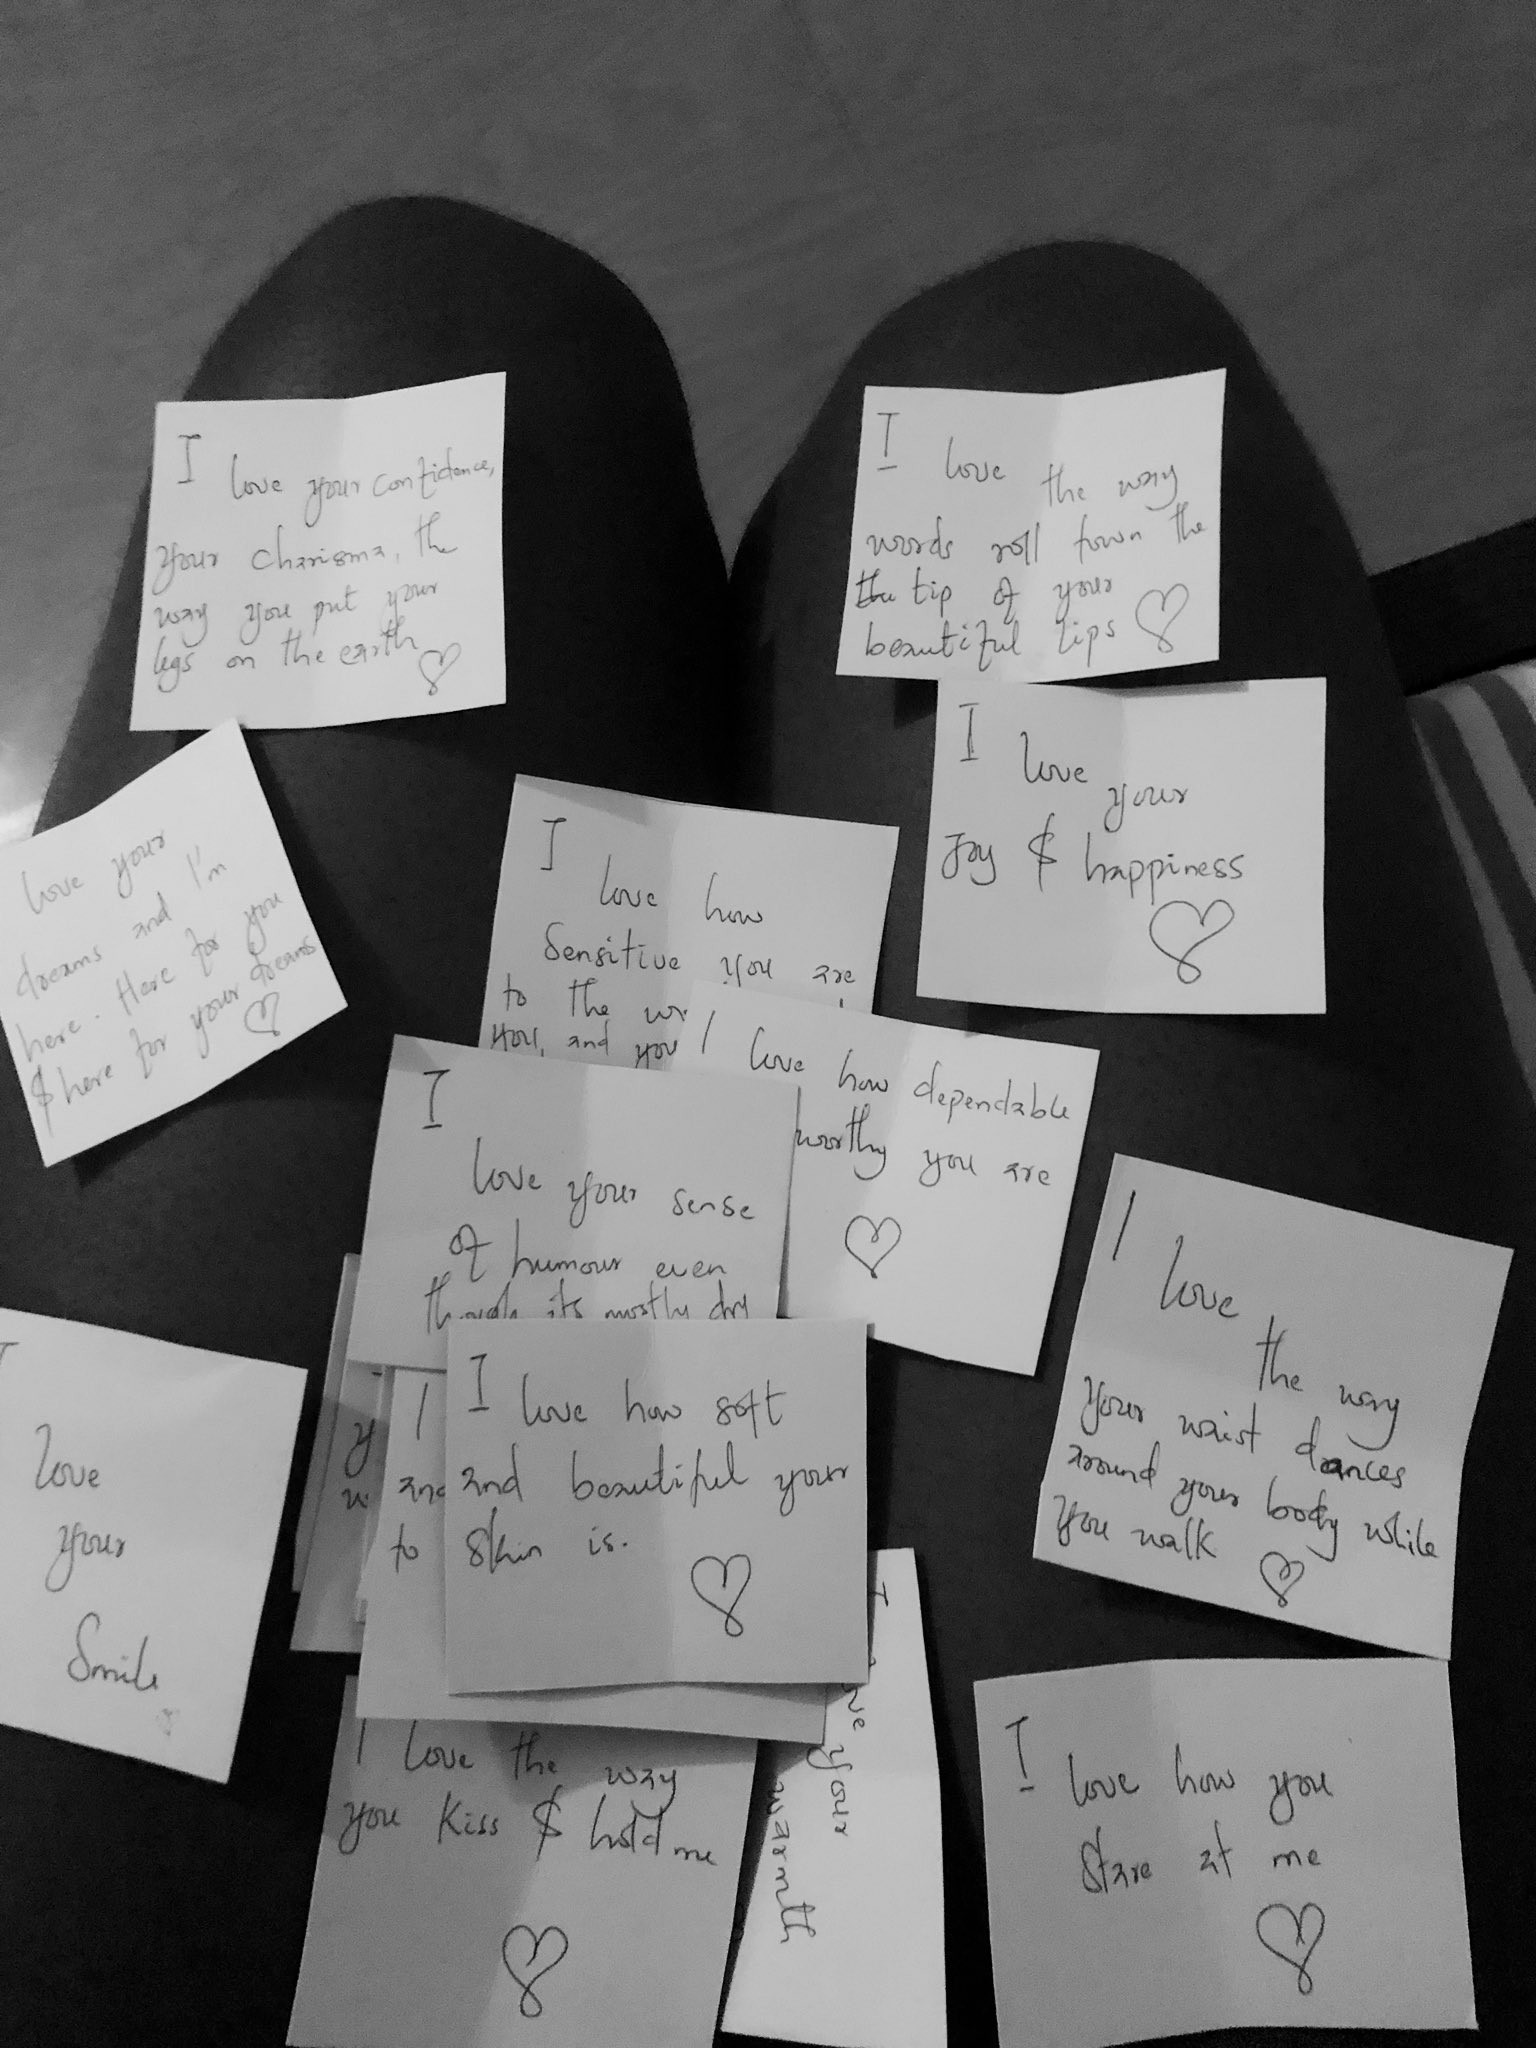 I
love your confidence,
your charisma, the
way you put your
legs on the earth
I
love the way
words roll town the
the tip of your
beautiful lips
I
love your
Joy & happiness
love your
dreams and I'm
here. Here for you
& here for your dreams
I
love how
Sensitive you are
to the
you, and you
I love how dependable
worthy you are
I
love your sense
of humour even
though its mostly dry
I
love
the way
your waist dances
around your body while
you walk
I
love
your
Smile
I love how soft
and beautiful your
skin is.
I
and
to
I love the way
you kiss & hold me
I
your
warmth
I
love how you
Stare at me